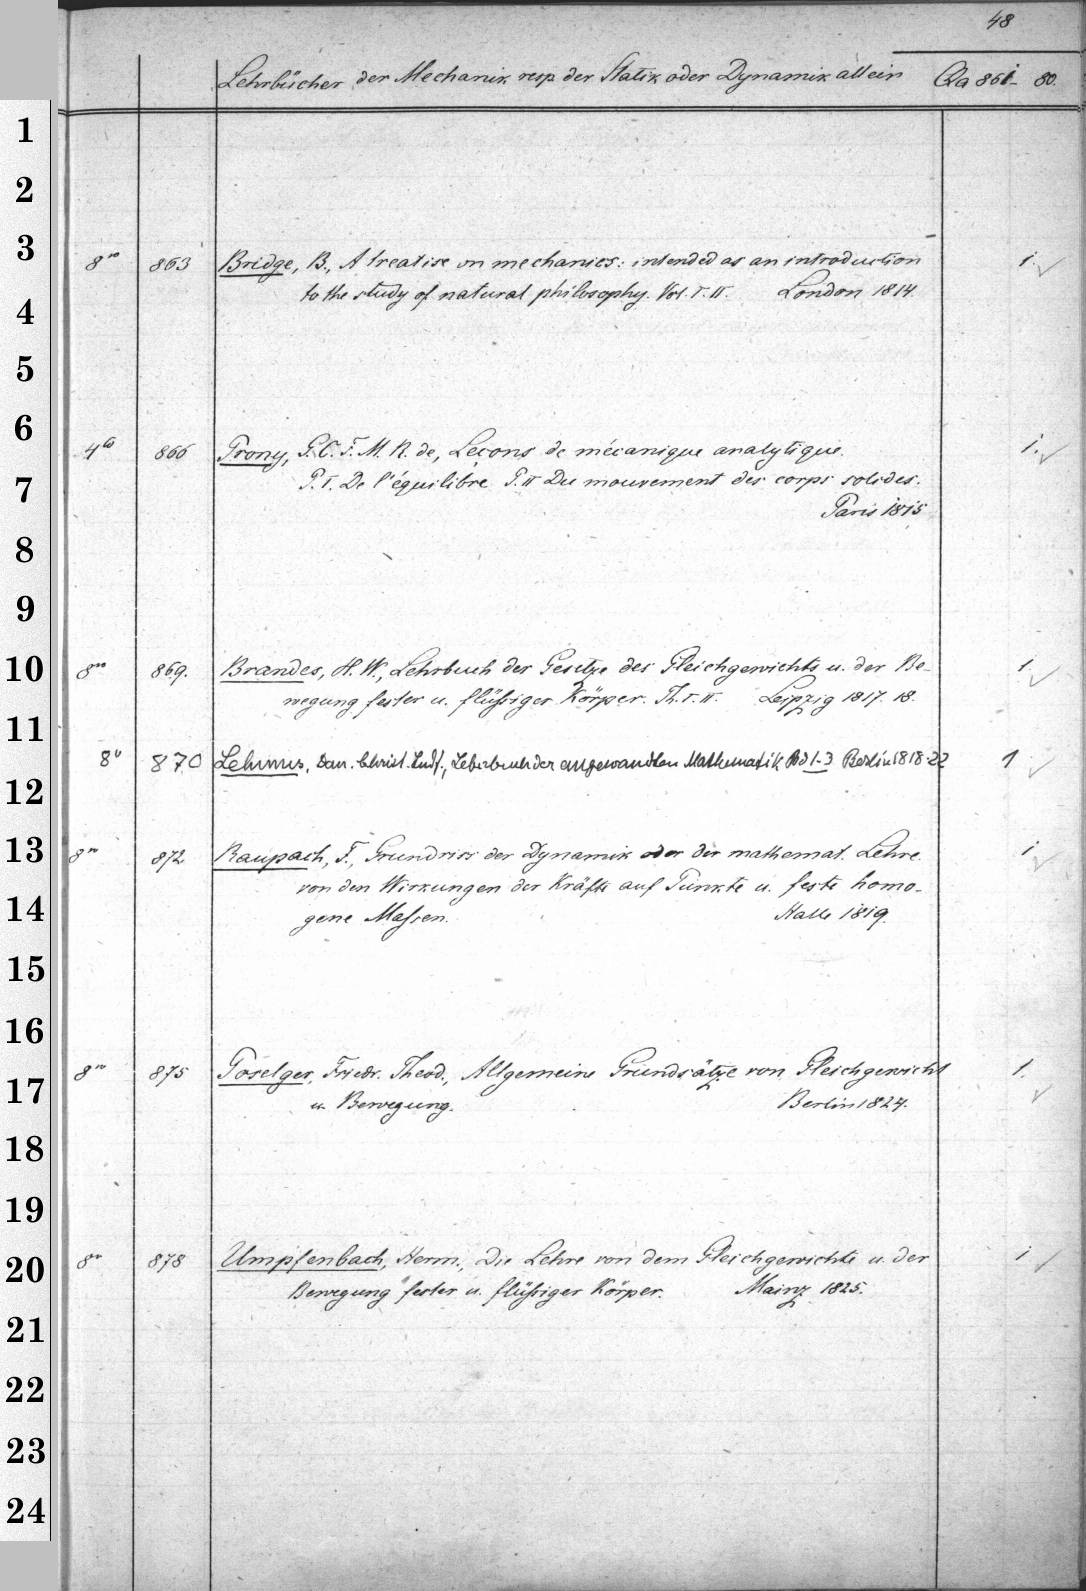 48
Lehrbücher der Mechanik resp der Statik oder Dynamik allein Qa 861- 80.
1
2
3
8vo 863 Bridge, B., A treatise on mechanics: intended as an introduction 1.
to the study of natural philosophy. Vol. I. II. London 1814.
4
5
6
4to 866 Prony, G. C. F. M. R. de, Leçons de mécanique analytique. 1.
7
P. I. De l'équilibre P. II Du mouvement des corps solides.
Paris 1815
8
9
10
8vo 869. Brandes, H. W., Lehrbuch der Gesetze des Gleichgewichts u. der Be- 1.
wegung fester u. flüßiger Körper. Th. I. II. Leipzig 1817. 18.
11
8o 870 Lehmus, Dan. Christ. Ludf., Lehrbuch der angewandten Mathematik Bd 1-3 Berlin 1818-22 1
12
13
8vo 872 Raupach, F., Grundriss der Dynamik oder der mathemat. Lehre 1
von den Wirkungen der Kräfte auf Punkte u. feste homo-
14
gene Maßen. Halle 1819.
15
16
8vo 875 Poselger, Friedr. Theod., Allgemeine Grundsätze von Gleichgewicht 1.
17
u. Bewegung. Berlin 1824.
18
19
20
8vo 878 Umpfenbach, Herm., Die Lehre von dem Gleichgewichte u. der 1
Bewegung fester u. flüßiger Körper. Mainz 1825.
21
22
23
24